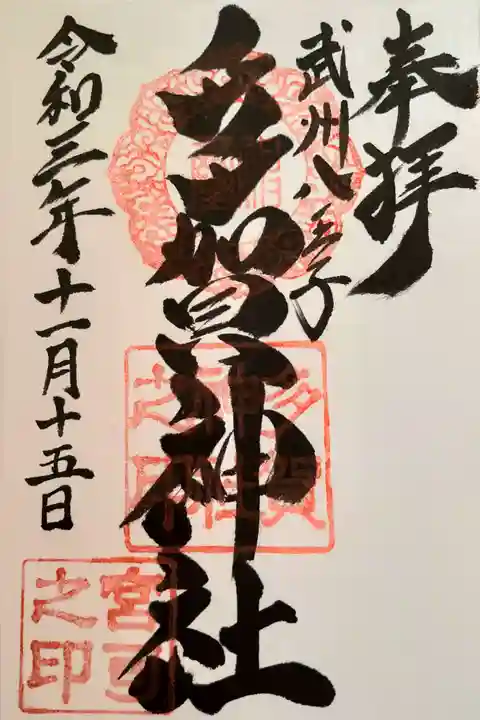 奉拝
武州八王子
多加賀神社
令和三年十一月十五日
多賀
神社
之印
宮司
之印